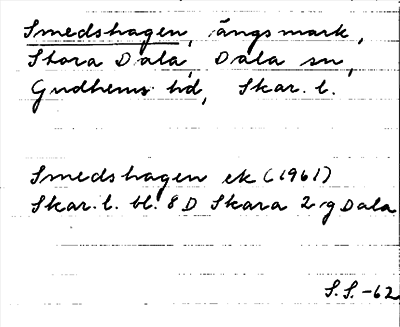 Smedshagen, ängsmark,
Stora Dala, Dala sn,
Gudhems hd, Skar. l.
Smedshagen ek (1961)
Skar. l. bl. 8 D Skara 2 g Dala
S.S. -62